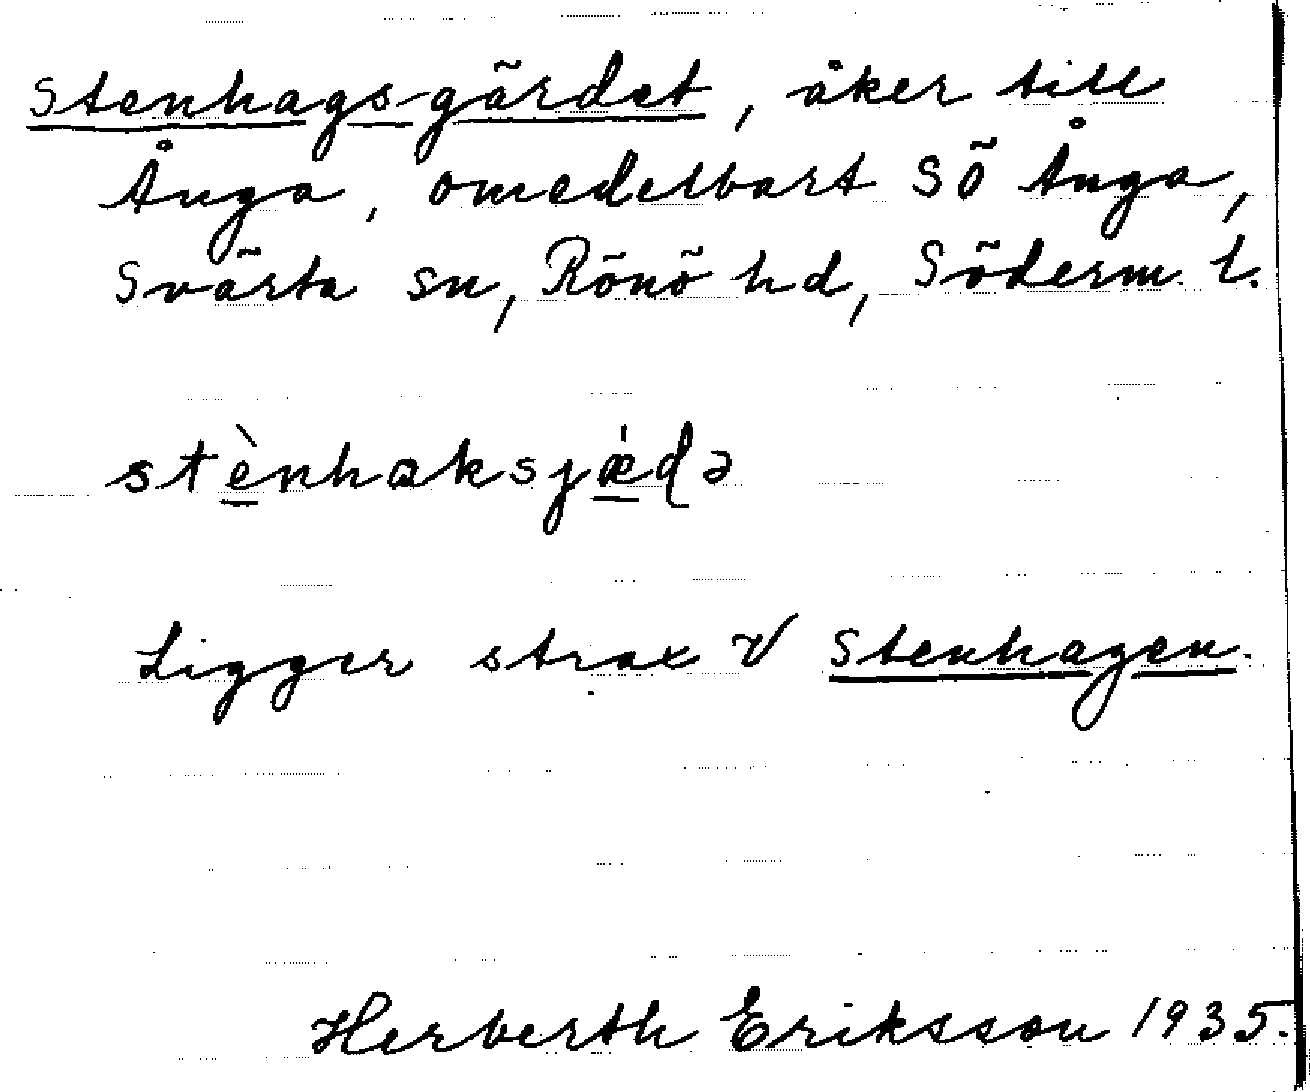 Stenhags-gärdet, åker till
Ånga, omedelbart SÖ Ånga,
Svärta sn, Rönö hd, Söderm. l.
stènhaksjǽdə
Ligger strax V Stenhagen.
Herberth Eriksson 1935.